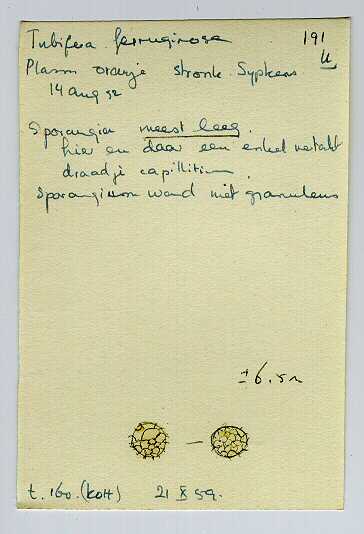 Tubifera ferruginosa 191
Plasm oranje stronk Sypkens
14 aug 52
Sporangia meest leeg.
hier en daar een enkel vertakt
draadje capillitium.
Sporangium wand niet granuleus
± 6.5 µ
t. 160. (Kott) 21 X 59.